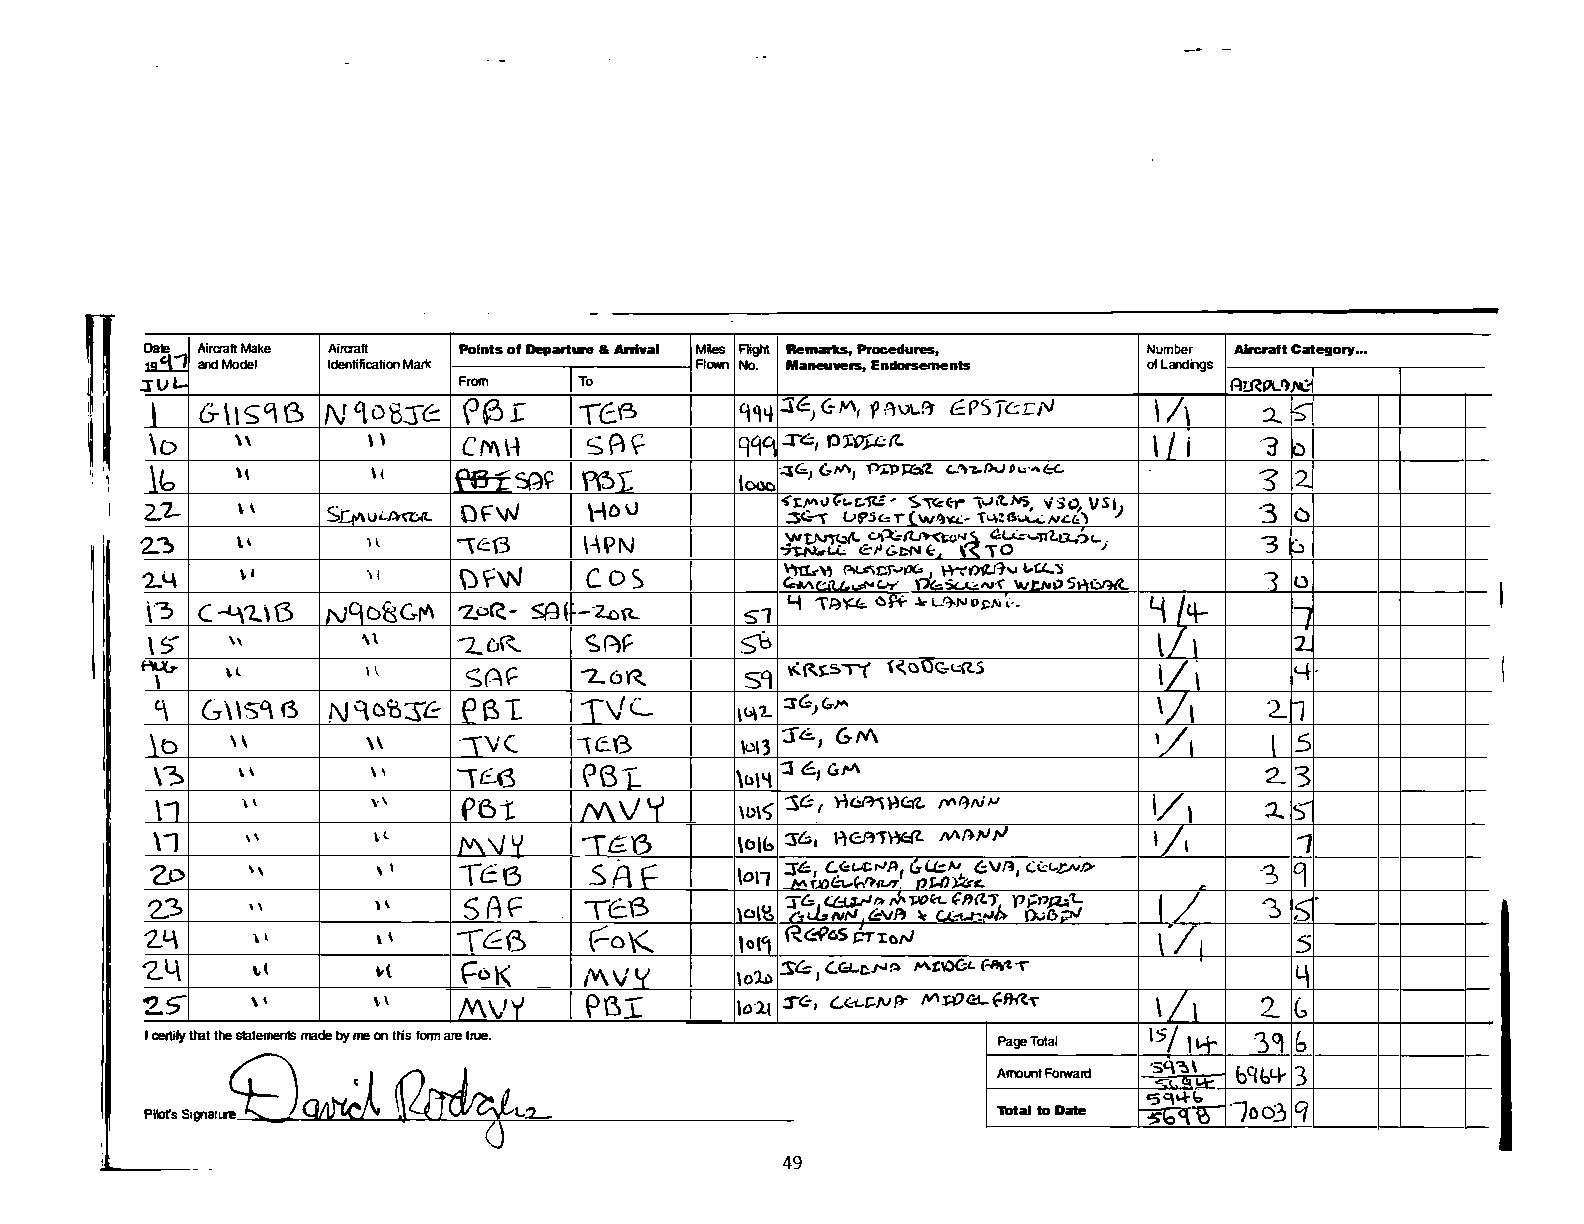 Date Aircraft Make Aircraft Points of Departure & Arrival Miles Flight Remarks, Procedures, Number Aircraft Category...
1997 and Model Identification Mark Flown No. Maneuvers, Endorsements of Landings
JUL From To AIRPLANE
1 G1159B N908JE PBI TEB 994 JE, GM, PAULA EPSTEIN 1/1 2 5
10 " " CMH SAF 999 JE, DIDIER 1/1 3 0
16 " " PBI SAF PBI 1000 JE, GM, DIDIER 3 2
22 " SIMULATOR DFW HOU SIMUFLITE - STEEP TURNS, VSO, VSI, 3 0
JET UPSET (WAKE-TURBULENCE)
23 " " TEB HPN WINTER OPERATIONS, ELECTRICAL, 3 0
SINGLE ENGINE, RTO
24 " " DFW COS HIGH ALTITUDE, HYDRAULICS 3 0
EMERGENCY DESCENT WINDSHEAR
13 C-421B N908GM ZOR- SAF-ZOR 57 4 TAKE OFF & LANDING 4/4 7
15 " " ZOR SAF 58 1/1 2
AUG
1 " " SAF ZOR 59 KRISTY RODGERS 1/1 4
9 G1159B N908JE PBI TVC 1012 JE, GM 1/1 2 7
10 " " TVC TEB 1013 JE, GM 1/1 1 5
13 " " TEB PBI 1014 JE, GM 2 3
17 " " PBI MVY 1015 JE, HEATHER MANN 1/1 2 5
17 " " MVY TEB 1016 JE, HEATHER MANN 1/1 7
20 " " TEB SAF 1017 JE, CELINA, GLEN, EVA, CELINA 3 9
MIDELFART,
23 " " SAF TEB 1018 JE, CELINA MIDELFART, DIDIER 1/ 3 5
GLENN, EVA & CELINA DUBIN
24 " " TEB FOK 1019 REPOSITION 1/1 5
24 " " FOK MVY 1020 JE, CELINA MIDELFART 4
25 " " MVY PBI 1021 JE, CELINA MIDELFART 1/1 2 6
I certify that the statements made by me on this form are true.
Page Total 15/14 39 6
Amount Forward 5931 5684 6964 3
Pilot's Signature David Rodgers Total to Date 5946 5698 7003 9
49